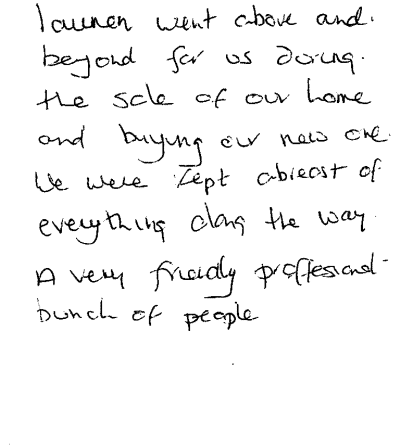 Lauren went above and
beyond for us during
the sale of our home
and buying our new one.
We were kept abreast of
everything along the way.
A very friendly proffessional
bunch of people